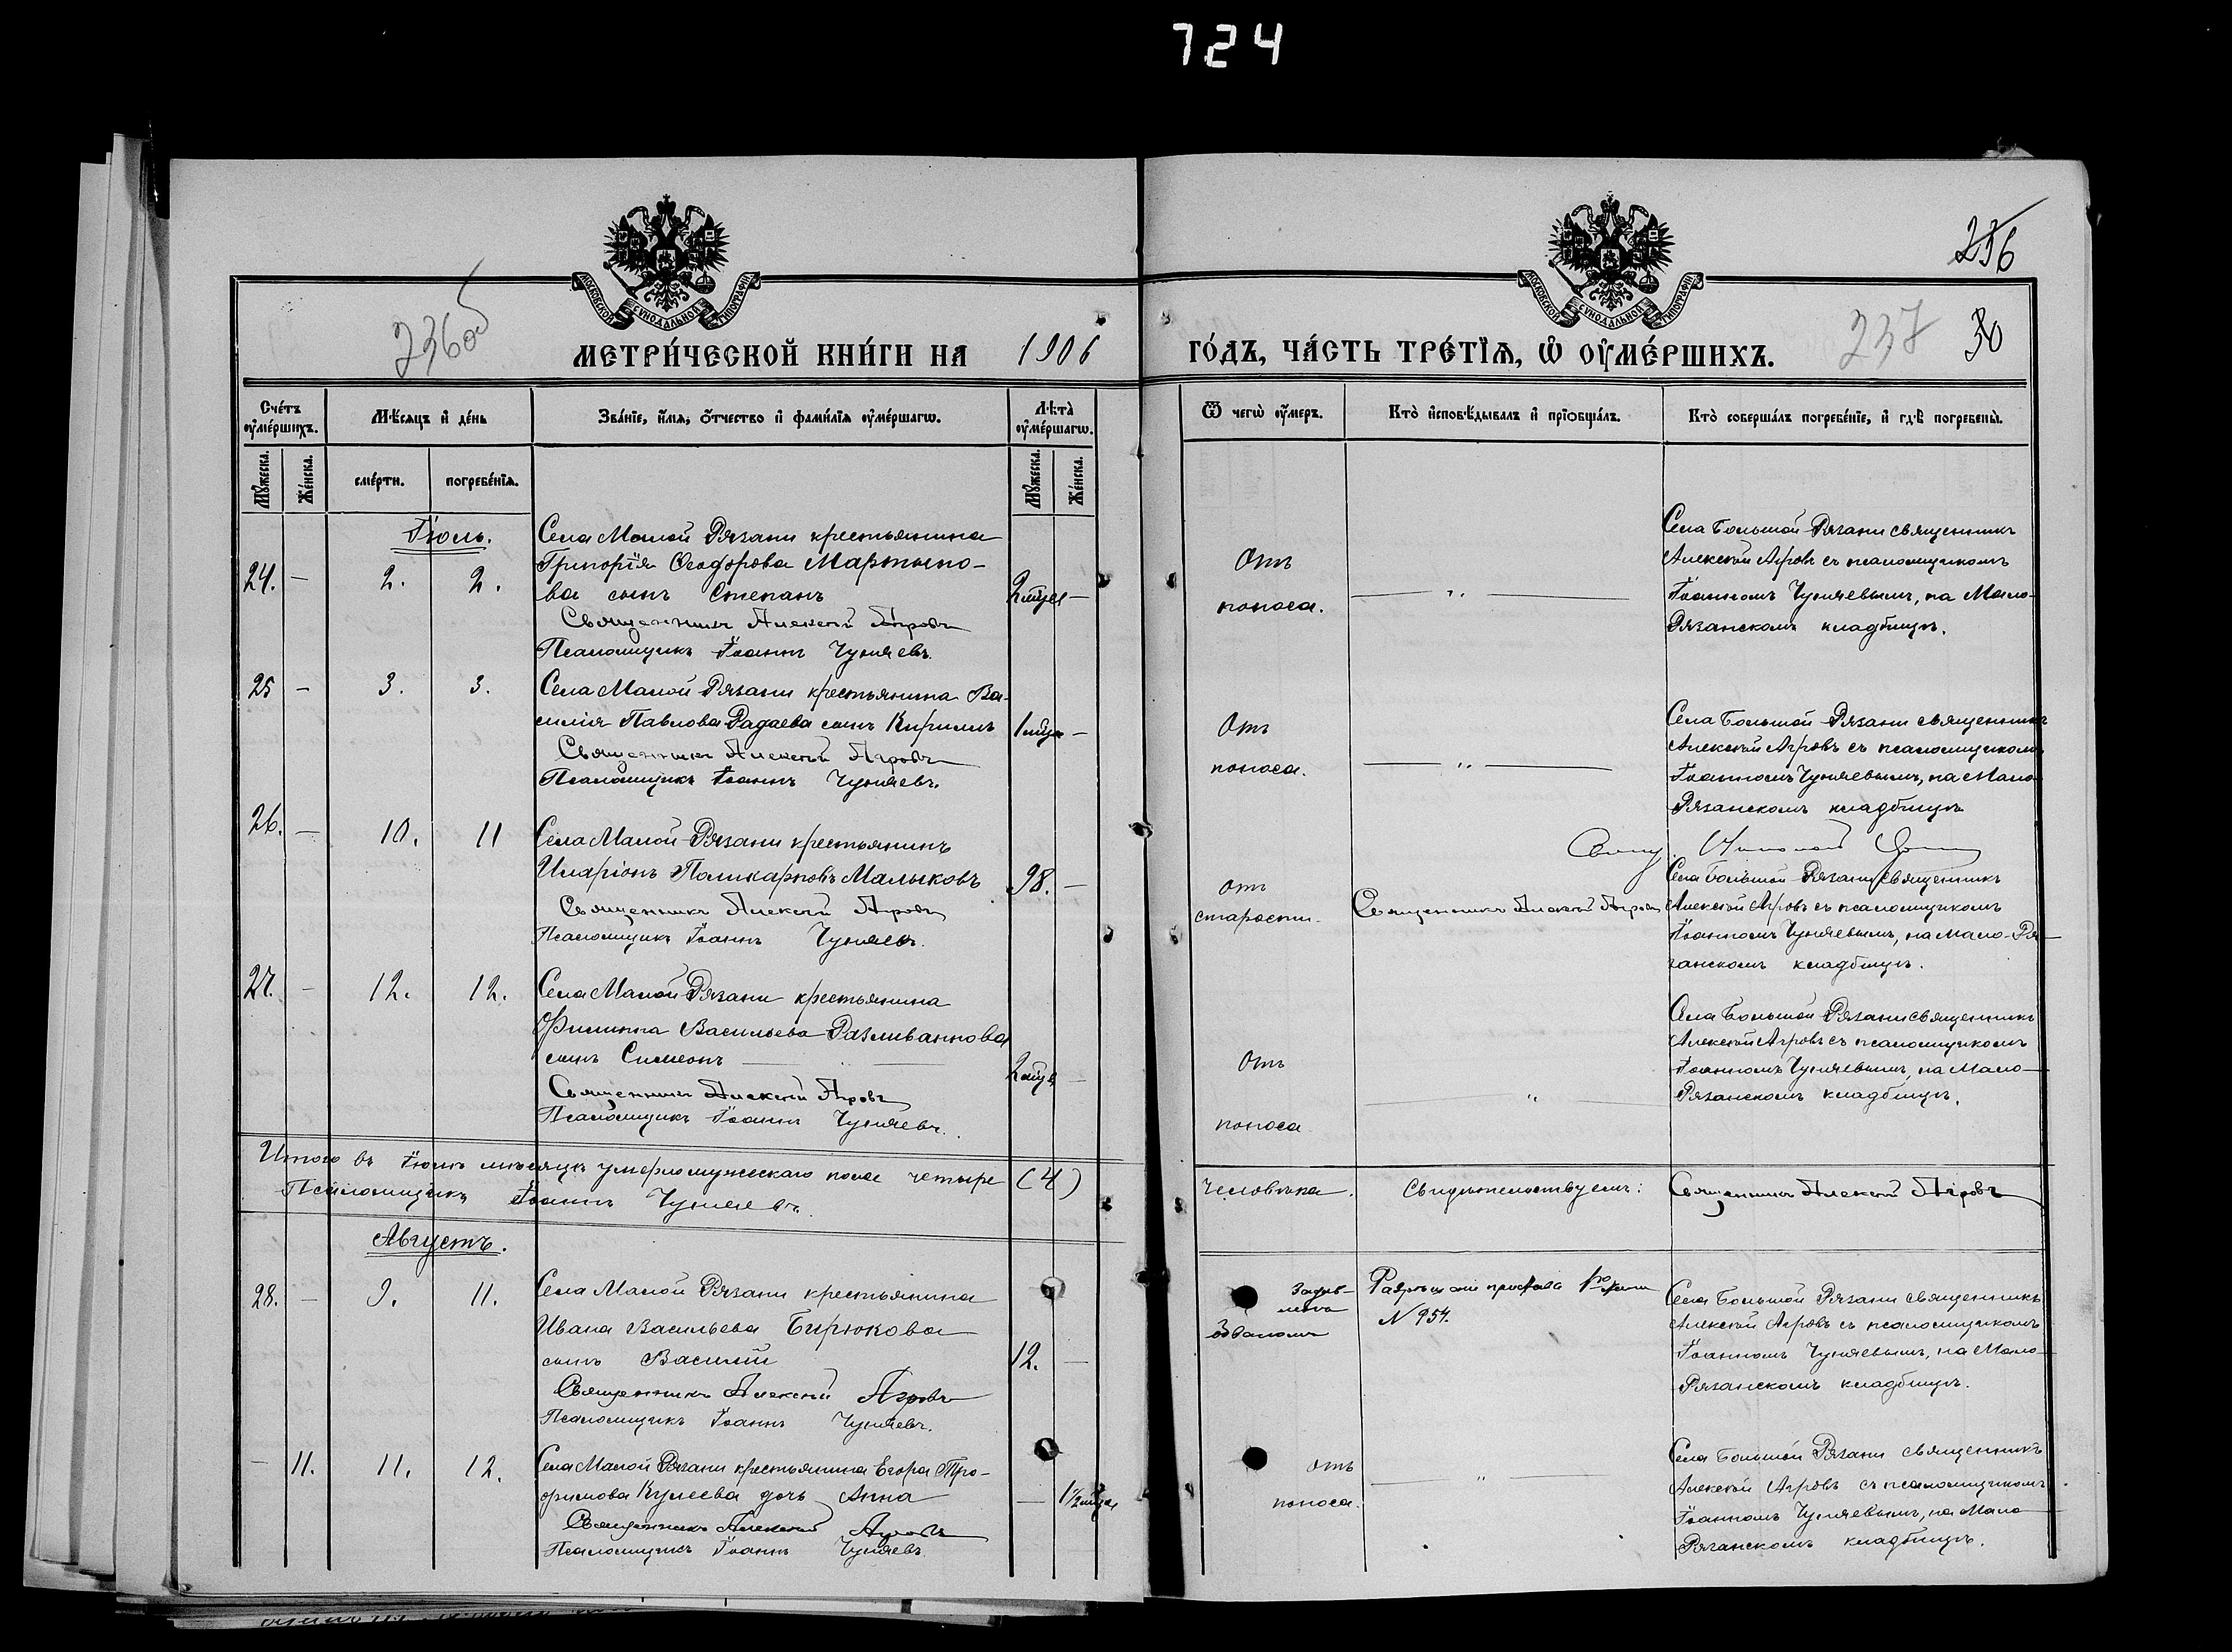 724
МОСКОВСКОЙ СѴНОДАЛЬНОЙ ТИПОГРАФІИ
МОСКОВСКОЙ СѴНОДАЛЬНОЙ ТИПОГРАФІИ
236
236об
237
30
МЕТРИ́ЧЕСКОЙ КНИ́ГИ НА 1906 ГО́ДЪ, ЧА́СТЬ ТРЕ́ТЇѦ, Ѡ ОУ҆МЕ́РШИХЪ.
Сче́тъ оу҆ме́ршихъ.
Мѣ́сяцъ и҆ де́нь
Зва́нїе, и҆́мѧ, ѻ҆́тчество и҆ фами́лїѧ оу҆ме́ршагѡ.
Лѣта̀ оу҆ме́ршагѡ.
Ѿ чегѡ̀ оу҆́меръ.
Кто̀ и҆сповѣ́дывалъ и҆ прїѡбща́лъ.
Кто̀ соверша́лъ погребе́нїе, и҆ гдѣ̀ погребены̀.
Мꙋ́жеска.
Же́нска.
сме́рти.
погребе́нїѧ.
Мꙋ́жеска.
Же́нска.
Іюль.
24. — 2. 2.
Села Малой Рязани крестьянина
Григорія Ѳеодорова Мартыно-
ва сынъ Степанъ
Священникъ Алексѣй Агровъ
Псаломщикъ Іоаннъ Чуняевъ.
2 мѣся —
Отъ
поноса.
— „ —
Села Большой Рязани священникъ
Алексѣй Агровъ съ псаломщикомъ
Іоанномъ Чуняевымъ, на Мало-
Рязанскомъ кладбищѣ.
25 — 3. 3.
Села Малой Рязани крестьянина Ва-
силія Павлова Радаева сынъ Кириллъ
Священникъ Алексѣй Агровъ
Псаломщикъ Іоаннъ Чуняевъ.
1 мѣся —
Отъ
поноса.
— „ —
Села Большой Рязани священникъ
Алексѣй Агровъ съ псаломщикомъ
Іоанномъ Чуняевымъ, на Мало-
Рязанскомъ кладбищѣ
26. — 10. 11
Села Малой Рязани крестьянинъ
Иларіонъ Поликарповъ Малыковъ
Священникъ Алексѣй Агровъ
Псаломщикъ Іоаннъ Чуняевъ.
98. —
Отъ
старости.
Священникъ Алексѣй Агровъ
Села Большой Рязани священникъ
Алексѣй Агровъ съ псаломщикомъ
Іоанномъ Чуняевымъ, на Мало-Ря-
занскомъ кладбищѣ.
27. — 12. 12.
Села Малой Рязани крестьянина
Филиппа Васильева Разливаннова
сынъ Симеонъ —
Священникъ Алексѣй Агровъ
Псаломщикъ Іоаннъ Чуняевъ.
2 мѣся —
Отъ
поноса
„
Села Большой Рязани священникъ
Алексѣй Агровъ съ псаломщикомъ
Іоанномъ Чуняевымъ, на Мало-
Рязанскомъ кладбищѣ.
Итого въ Іюлѣ мѣсяцѣ умерло мужескаго пола четыре (4) человѣка. Свидѣтельствуемъ: Священникъ Алексѣй Агровъ
Псаломщикъ Іоаннъ Чуняевъ.
Августъ.
28. — 9. 11.
Села Малой Рязани крестьянина
Ивана Васильева Бирюкова
сынъ Василій
Священникъ Алексѣй Агровъ
Псаломщикъ Іоаннъ Чуняевъ.
12. —
N 954.
Села Большой Рязани священникъ
Алексѣй Агровъ съ псаломщикомъ
Іоанномъ Чуняевымъ, на Мало-
Рязанскомъ кладбищѣ.
— 11. 11. 12.
Села Малой Рязани крестьянина Егора Тро-
фимова Кулеева дочь Анна
Священникъ Алексѣй Агровъ
Псаломщикъ Іоаннъ Чуняевъ.
— 1½ мѣся
отъ
поноса.
— „ —
Села Большой Рязани священникъ
Алексѣй Агровъ съ псаломщикомъ
Іоанномъ Чуняевымъ, на Мало-
Рязанскомъ кладбищѣ.